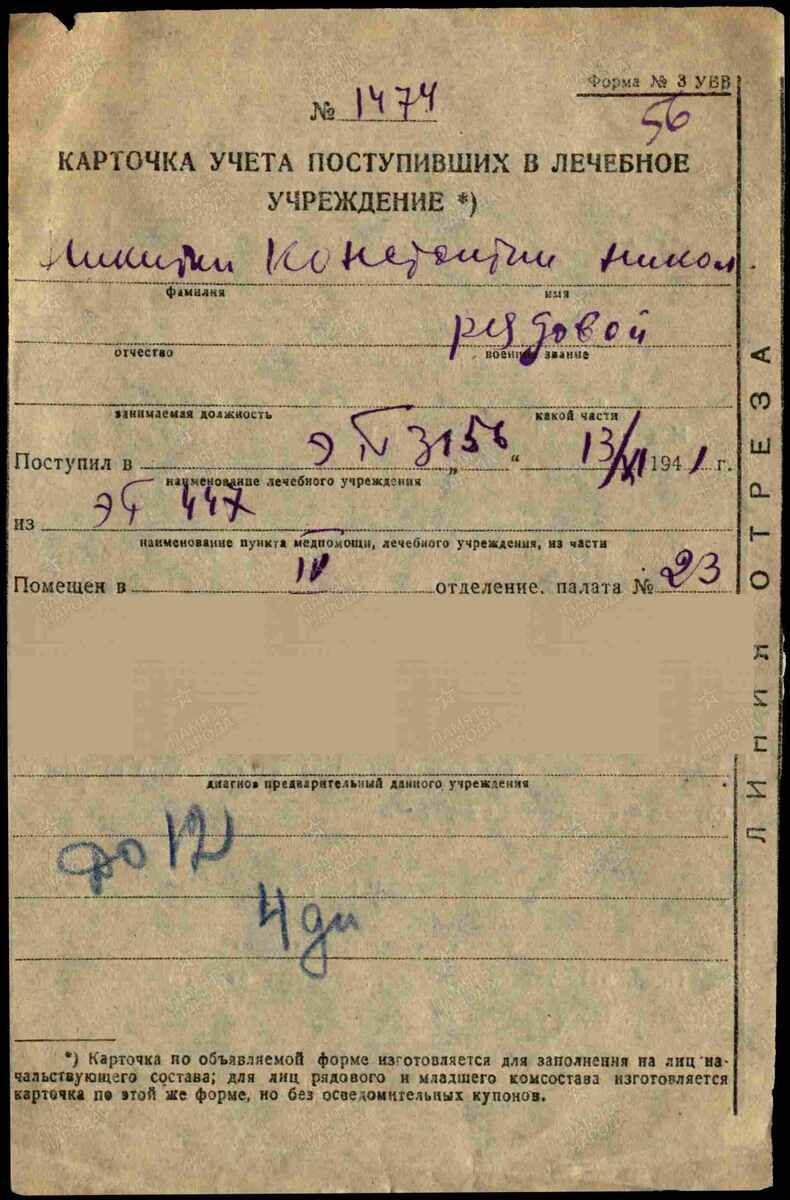 Форма № 3 УВВ
№ 1474
56
КАРТОЧКА УЧЕТА ПОСТУПИВШИХ В ЛЕЧЕБНОЕ
УЧРЕЖДЕНИЕ *)
Никитин Константин Никол.
фамилия имя
рядовой
отчество военное звание
занимаемая должность какой части
Поступил в ЭГ 3156 „ “ 13/XI 1941 г.
наименование лечебного учреждения
из ЭГ 447
наименование пункта медпомощи, лечебного учреждения, из части
Помещен в IV отделение, палата № 23
диагноз предварительный данного учреждения
до 12
4 дн
*) Карточка по объявляемой форме изготовляется для заполнения на лиц на-
чальствующего состава; для лиц рядового и младшего комсостава изготовляется
карточка по этой же форме, но без осведомительных купонов.
ЛИНИЯ ОТРЕЗА
ПАМЯТЬ НАРОДА